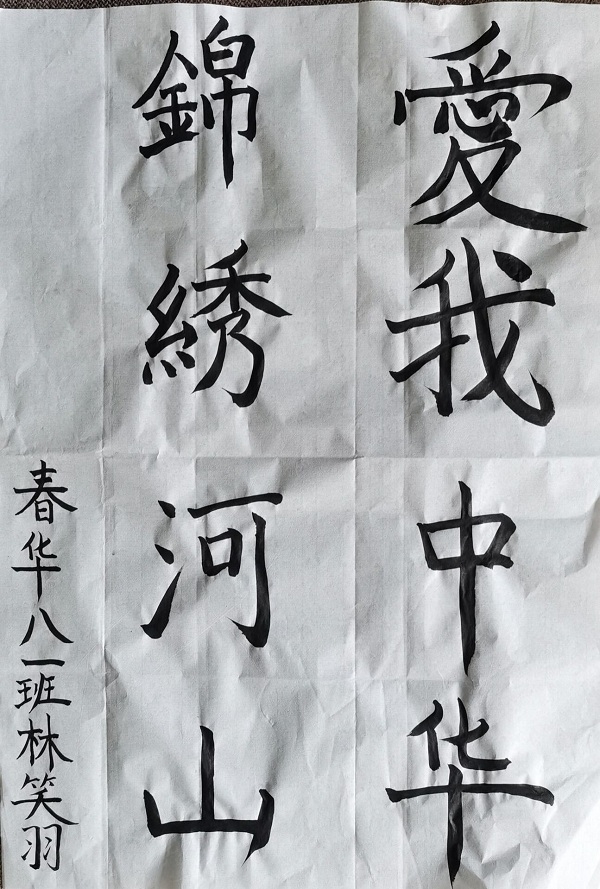 愛我中华
錦綉河山
春华八一班林笑羽